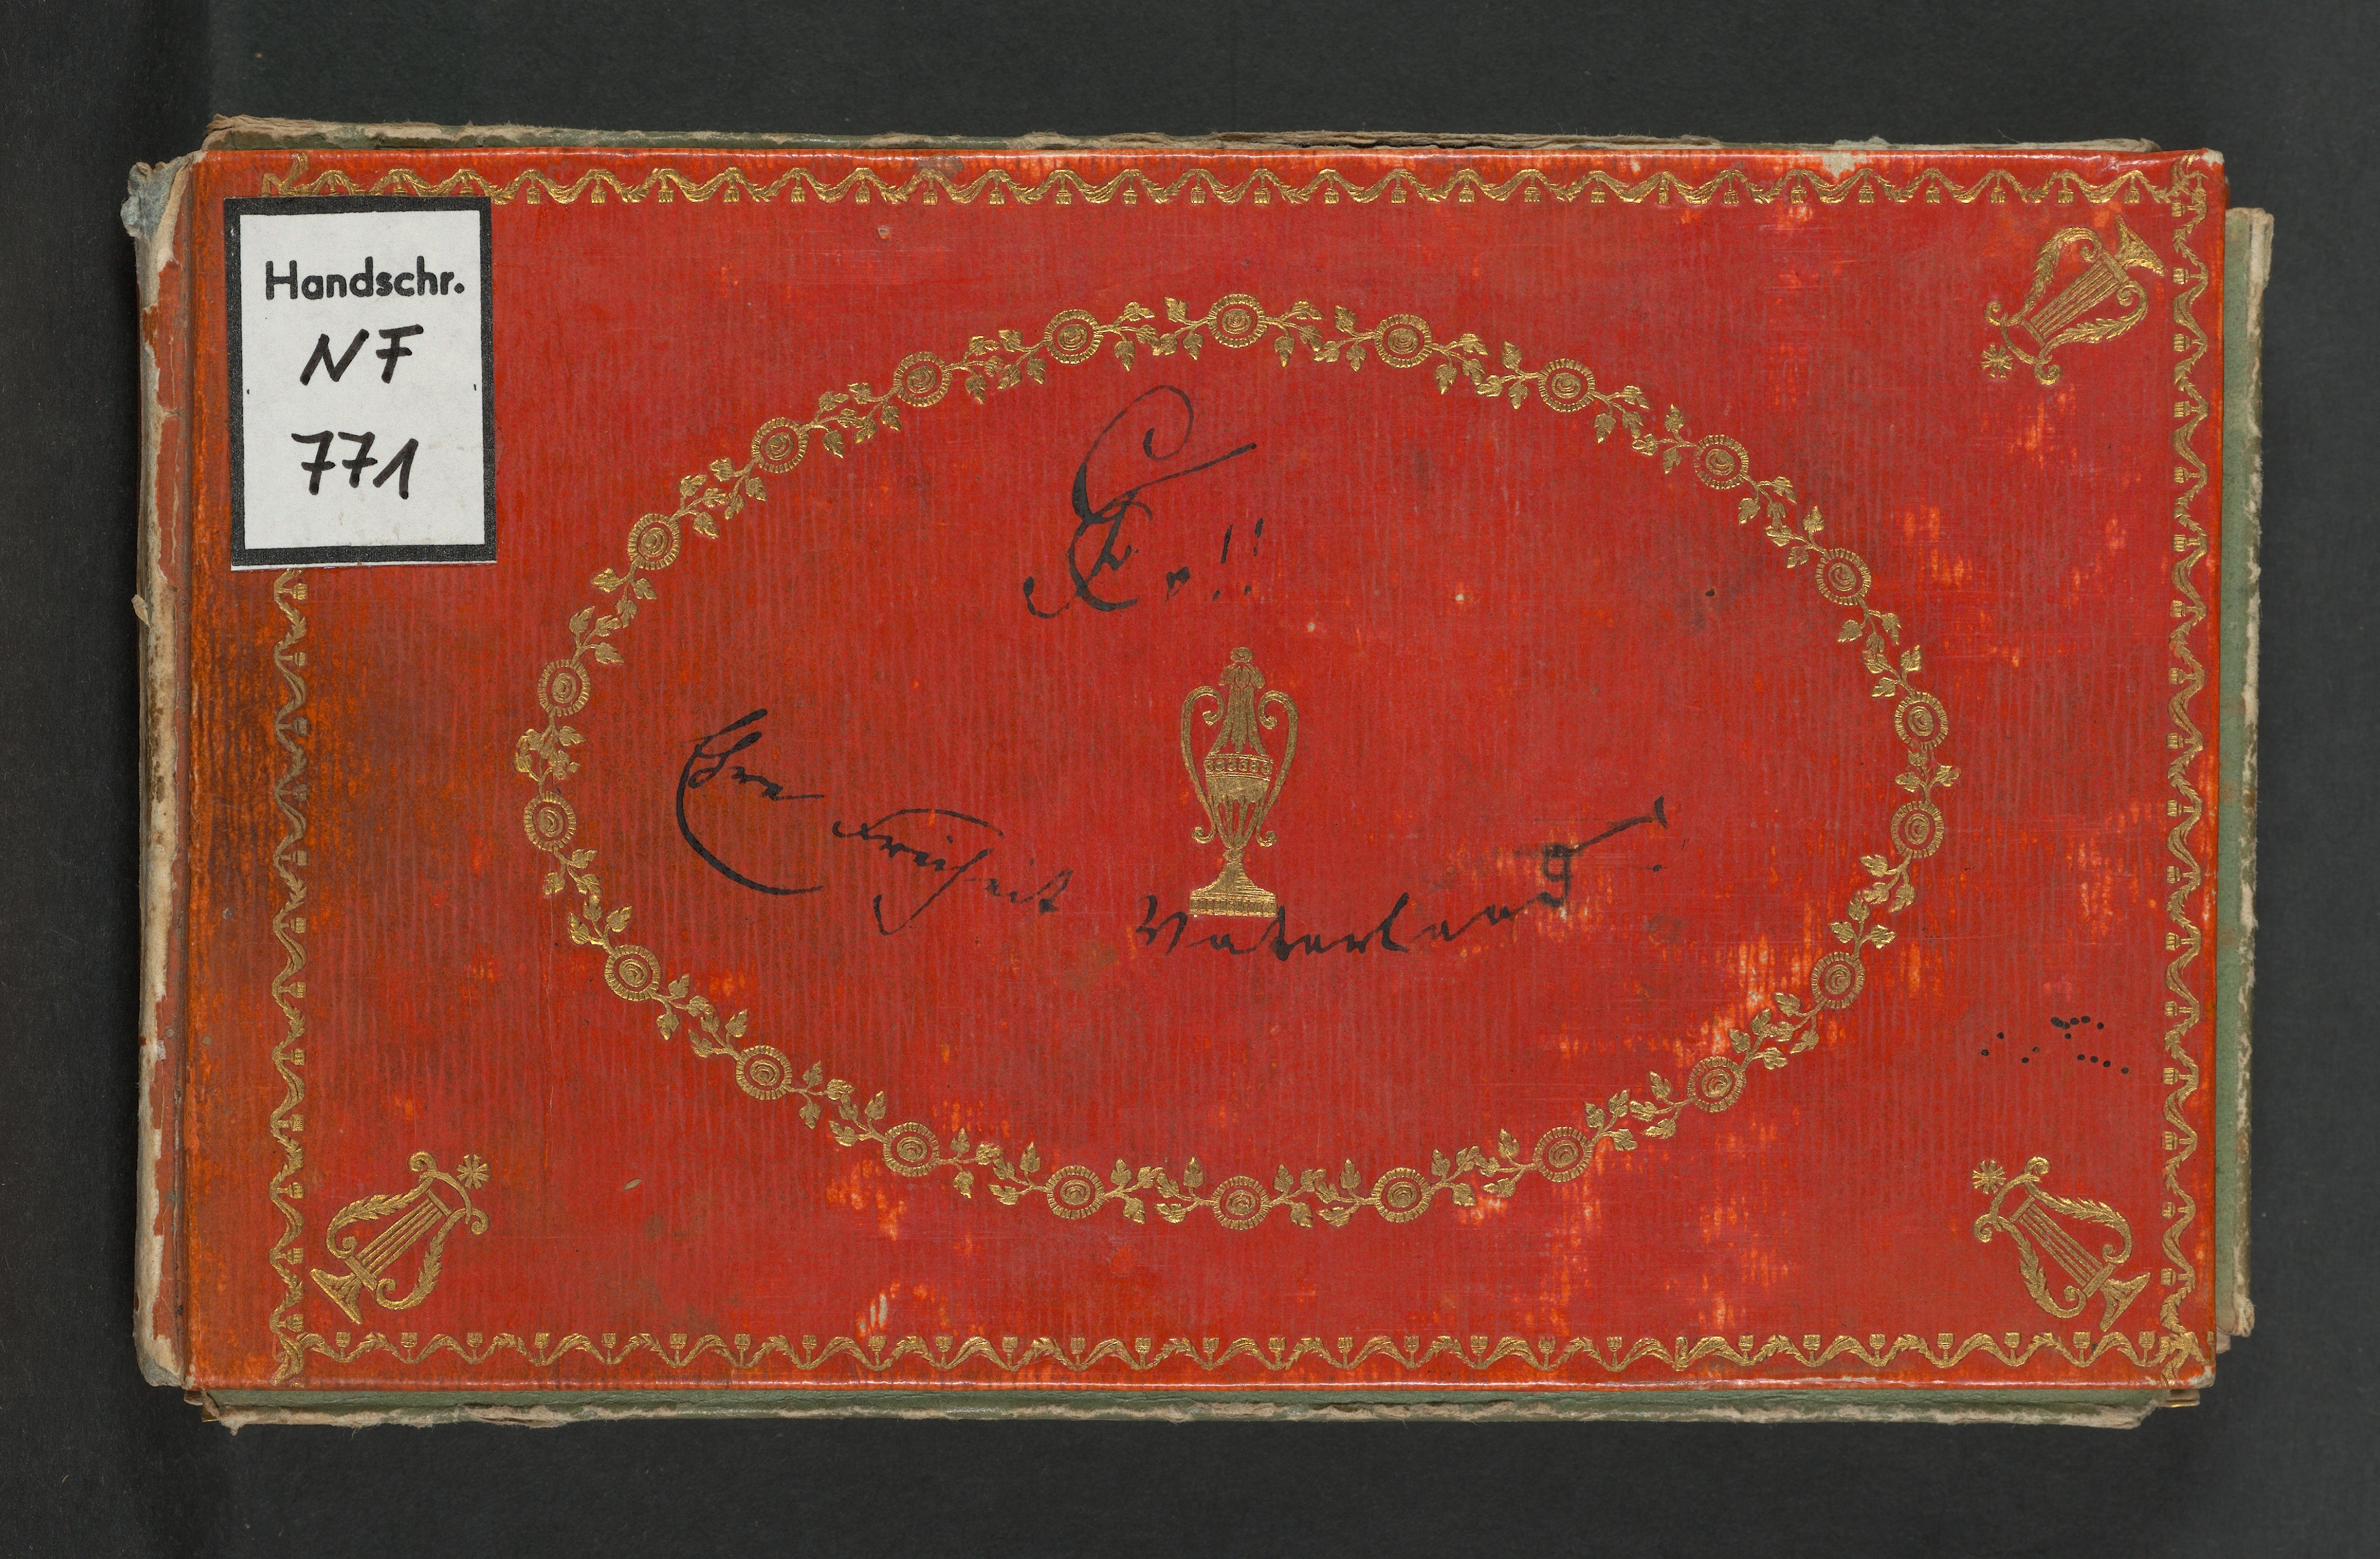 Handschr.
NF
771
Ehre Freiheit Vaterland!